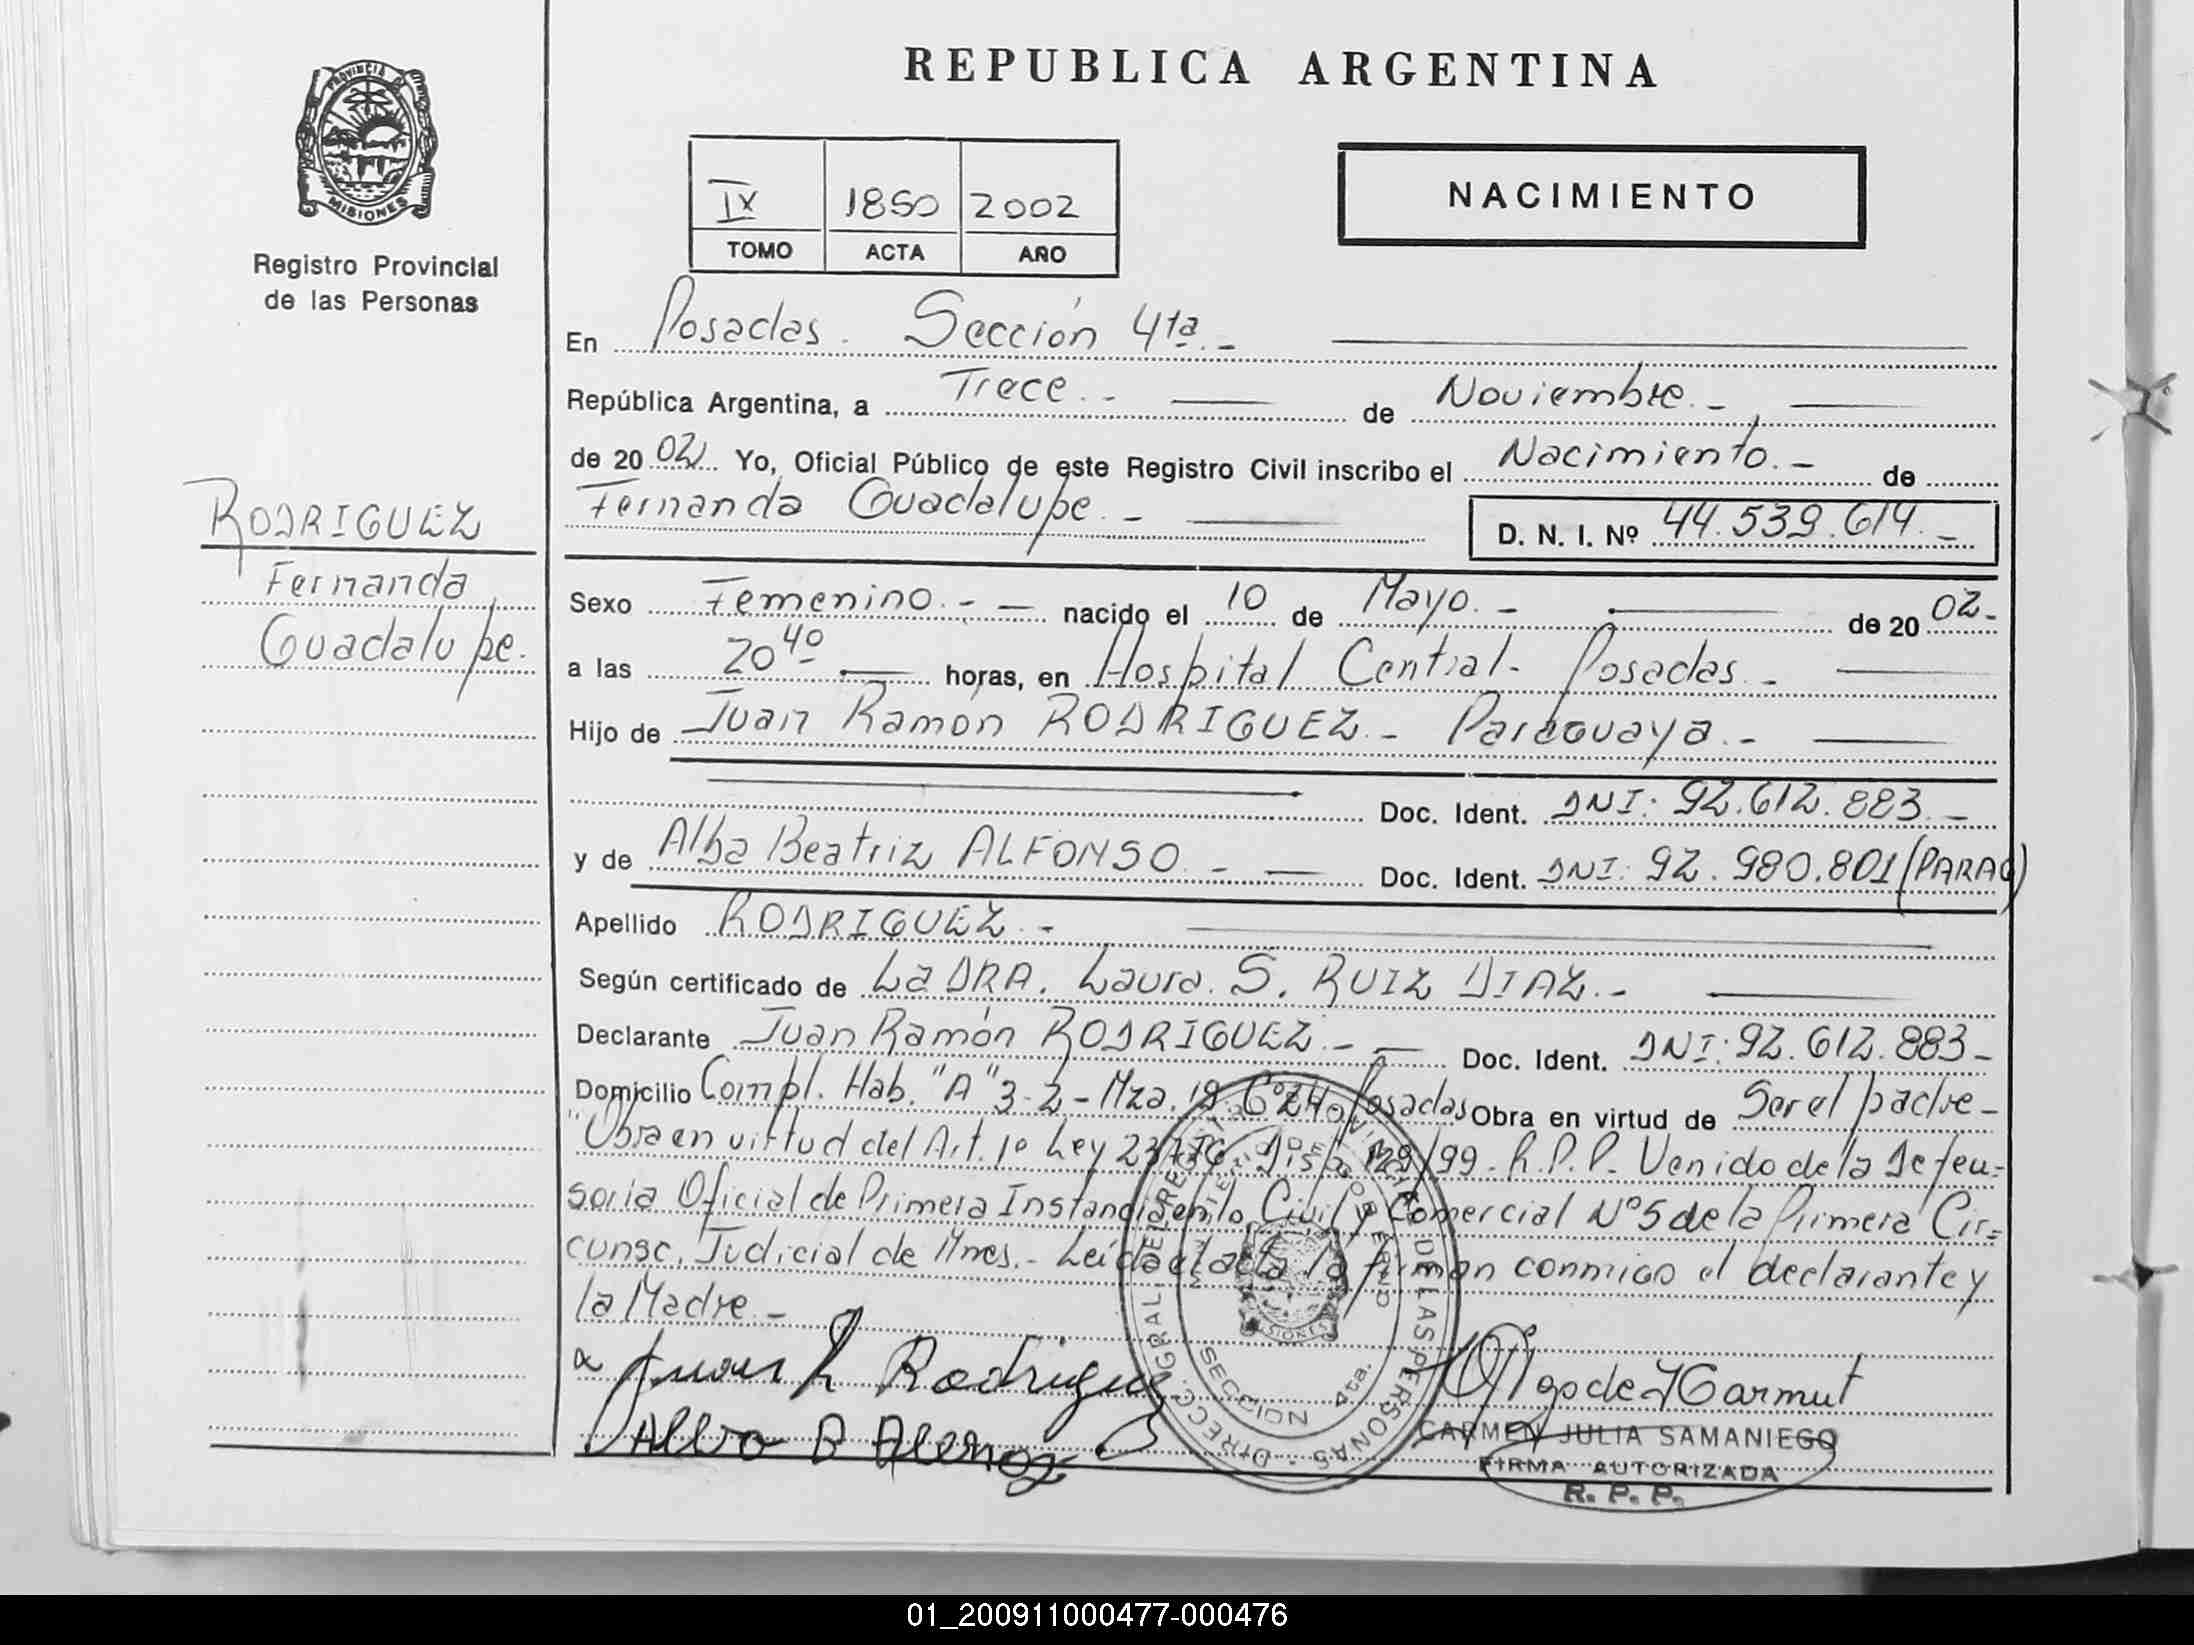 REPUBLICA ARGENTINA
PROVINCIA
MISIONES
Registro Provincial
de las Personas
IX 1850 2002
TOMO ACTA AÑO
NACIMIENTO
En Posadas. Sección 4ta.-
República Argentina, a Trece.- de Noviembre.-
de 2002 Yo, Oficial Público de este Registro Civil inscribo el Nacimiento.- de
Fernanda Guadalupe.- D. N. I. Nº 44.539.614.-
RODRIGUEZ
Fernanda
Guadalupe.
Sexo Femenino.- nacido el 10 de Mayo.- de 2002-
a las 20 40 horas, en Hospital Central- Posadas.-
Hijo de Juan Ramón RODRIGUEZ.- Paraguaya.-
Doc. Ident. DNI: 92.612.883.-
y de Alba Beatriz ALFONSO.- Doc. Ident. DNI: 92.980.801 (PARAG)
Apellido RODRIGUEZ.-
Según certificado de La DRA. Laura. S. RUIZ DIAZ.-
Declarante Juan Ramón RODRIGUEZ.- Doc. Ident. DNI: 92.612.883-
Domicilio Compl. Hab. "A" 3-2- Mza. 19 Posadas Obra en virtud de Ser el padre-
"Obra en virtud del Art. 1º Ley 129/99- R.P.P. Venido de la Defen=
soria Oficial de Primera Instancia en lo Civil y Comercial Nº5 de la Primera Cir=
cunsc. Judicial de Mnes.- Leída el acta la firman conmigo el declarante y
la Madre.-
Juan R Rodriguez
Alba B
DIRECC. GRAL. DE REGISTRO PROVINCIAL DE LAS PERSONAS
MINISTERIO DE GOBIERNO
MISIONES
SECCION 4ta.
CARMEN JULIA SAMANIEGO
FIRMA AUTORIZADA
R. P. P.
01_200911000477-000476